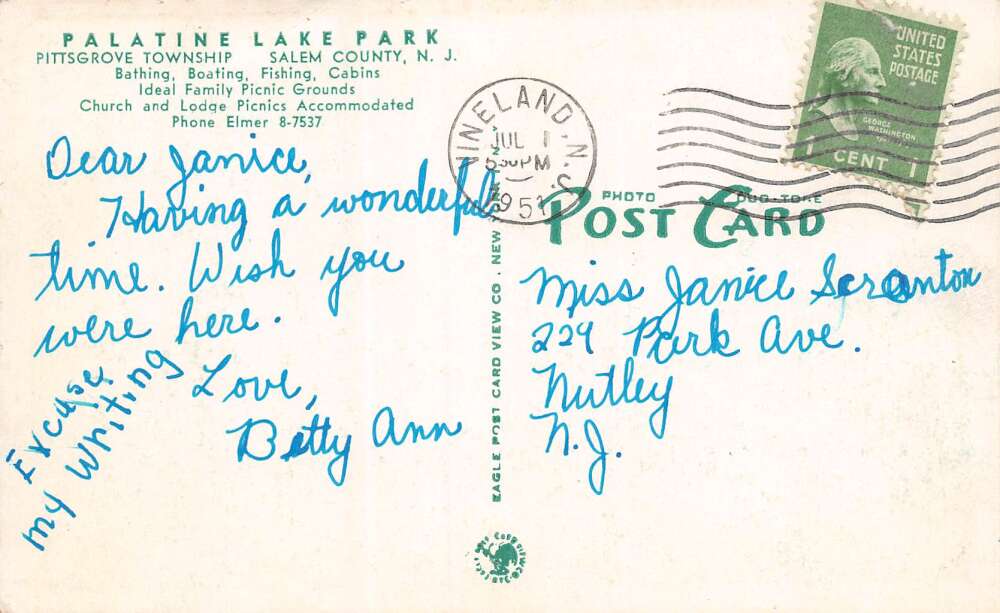 PALATINE LAKE PARK
PITTSGROVE TOWNSHIP SALEM COUNTY, N. J.
Bathing, Boating, Fishing, Cabins
Ideal Family Picnic Grounds
Church and Lodge Picnics Accommodated
Phone Elmer 8-7537
Dear Janice,
Having a wonderful
time. Wish you
were here.
Love,
Betty Ann
Excuse
my writing
VINELAND, N.J.
JUL 1
5 30 PM
1951
UNITED
STATES
POSTAGE
GEORGE
WASHINGTON
1 CENT 1
PHOTO DUO-TONE
POST CARD
Miss Janice Scranton
229 Park Ave.
Nutley
N.J.
EAGLE POST CARD VIEW CO. NEW YORK